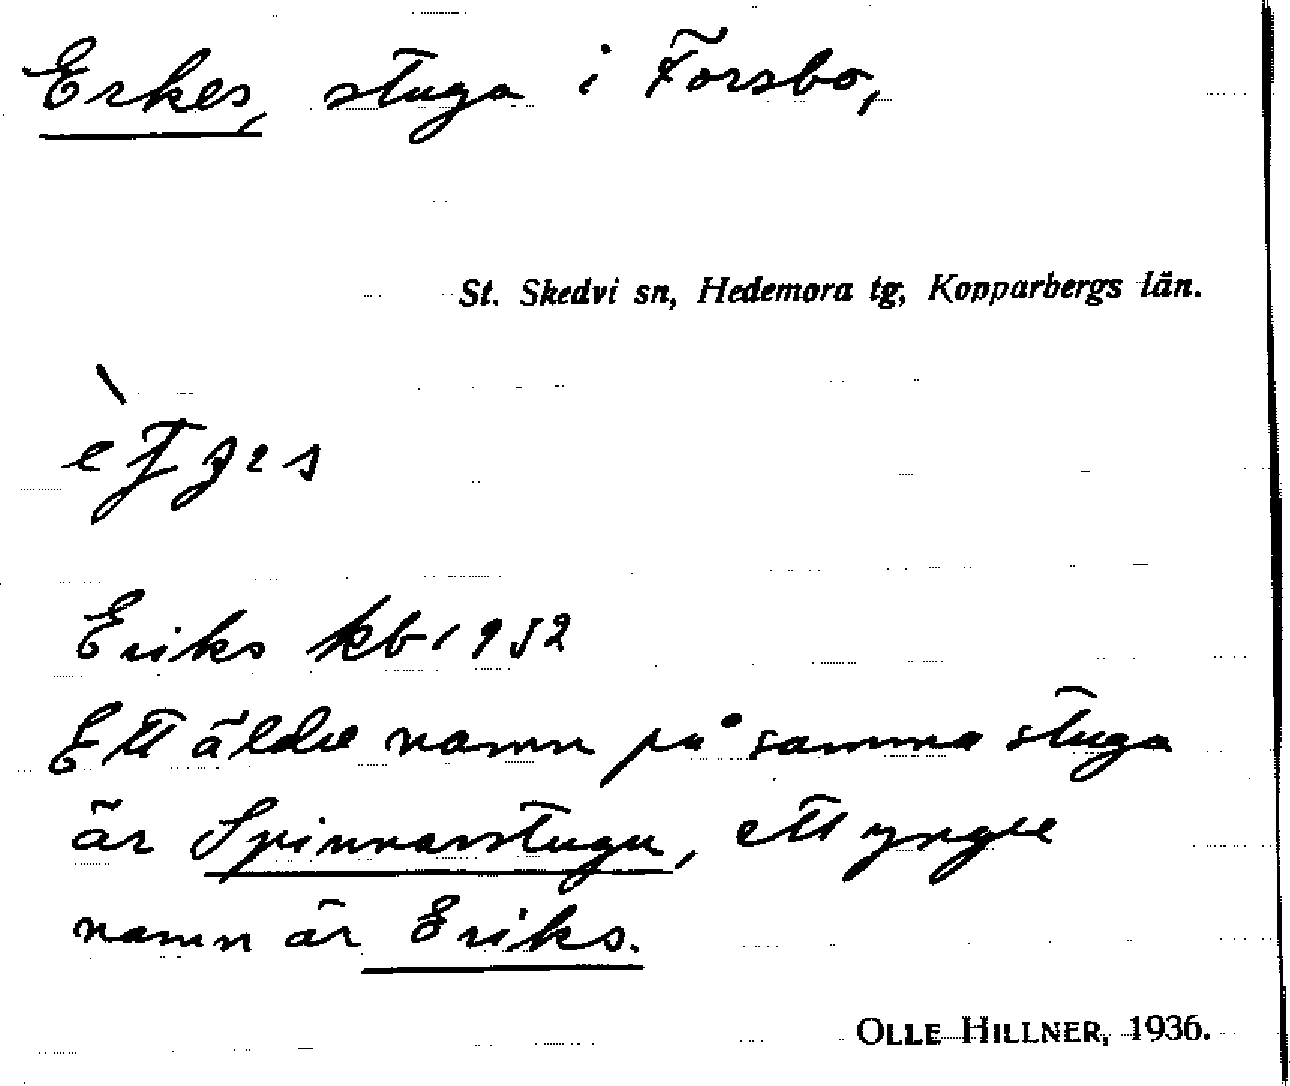 Erkes, stuga i Forsbo,
St. Skedvi sn, Hedemora tg, Kopparbergs län.
Eriks kb
Ett äldre namn på samma stuga
är Spinnarstugu, ett yngre
namn är Eriks.
OLLE HILLNER, 1936.